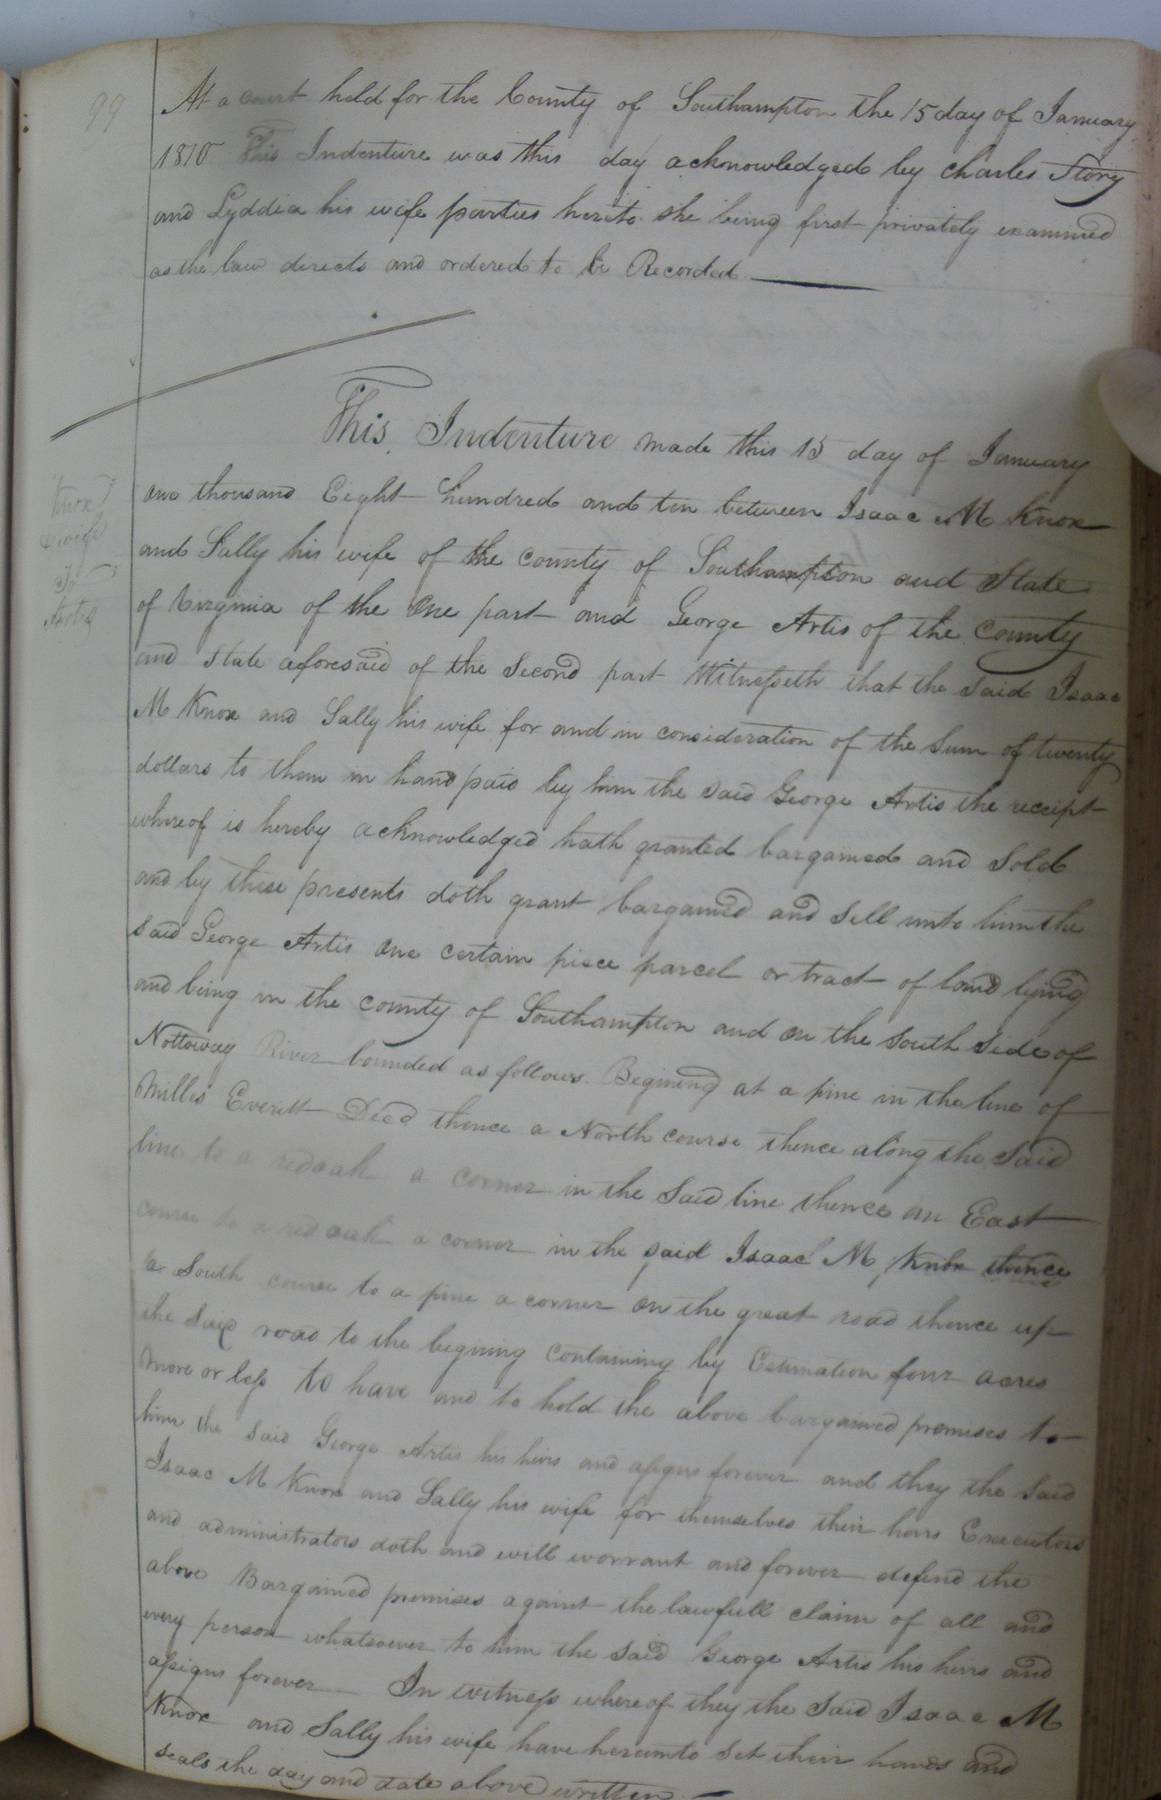 99
At a court held for the County of Southampton the 15 day of January
1810 This Indenture was this day acknowledged by Charles Story
and Lyddia his wife parties hereto she being first privately examined
as the law directs and ordered to be Recorded
Knox
& wife
To
Artis
This Indenture made this 15 day of January
one thousand Eight hundred and ten between Isaac M Knox
and Sally his wife of the county of Southampton and State
of Virginia of the One part and George Artis of the County
and state aforesaid of the Second part Witnesseth that the said Isaac
M Knox and Sally his wife for and in consideration of the Sum of twenty
dollars to them in hand paid by him the said George Artis the receipt
whereof is hereby acknowledged hath granted bargained and Sold
and by these presents doth grant bargained and Sell unto him the
said George Artis one certain piece parcel or tract of land lying
and being in the county of Southampton and on the South Side of
Nottoway River bounded as follows. Begining at a pine in the line of
Milles Everett Deed thence a North course thence along the Said
line to a redoak a corner in the Said line thence an East
course to a red oak a corner in the said Isaac M Knox thence
a South course to a pine a corner on the great road thence up
the Said road to the begining Containing by Estimation four acres
more or less to have and to hold the above bargained premises to
him the Said George Artis his heirs and assigns forever and they the Said
Isaac M Knox and Sally his wife for themselves their hons Executors
and administrators doth and will worrant and forever defend the
above Bargained premises against the lawfull claim of all and
every person whatsoever to him the said George Artis his heirs and
assigns forever In witness whereof they the Said Isaac M
Knox and Sally his wife have hereunto Set their hands and
seals the day and date above written